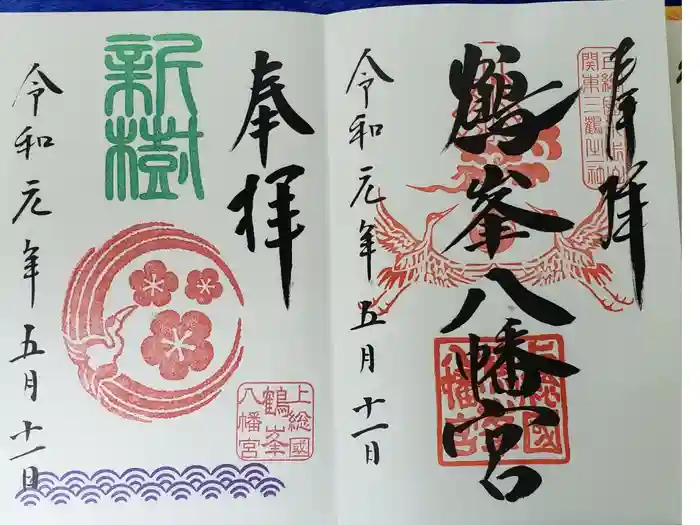 奉拝
上総國市原
関東三鶴之社
鶴峯八幡宮
上総國
鶴峯
八幡宮
令和元年五月十一日
奉拝
新樹
上総國
鶴峯
八幡宮
令和元年五月十一日